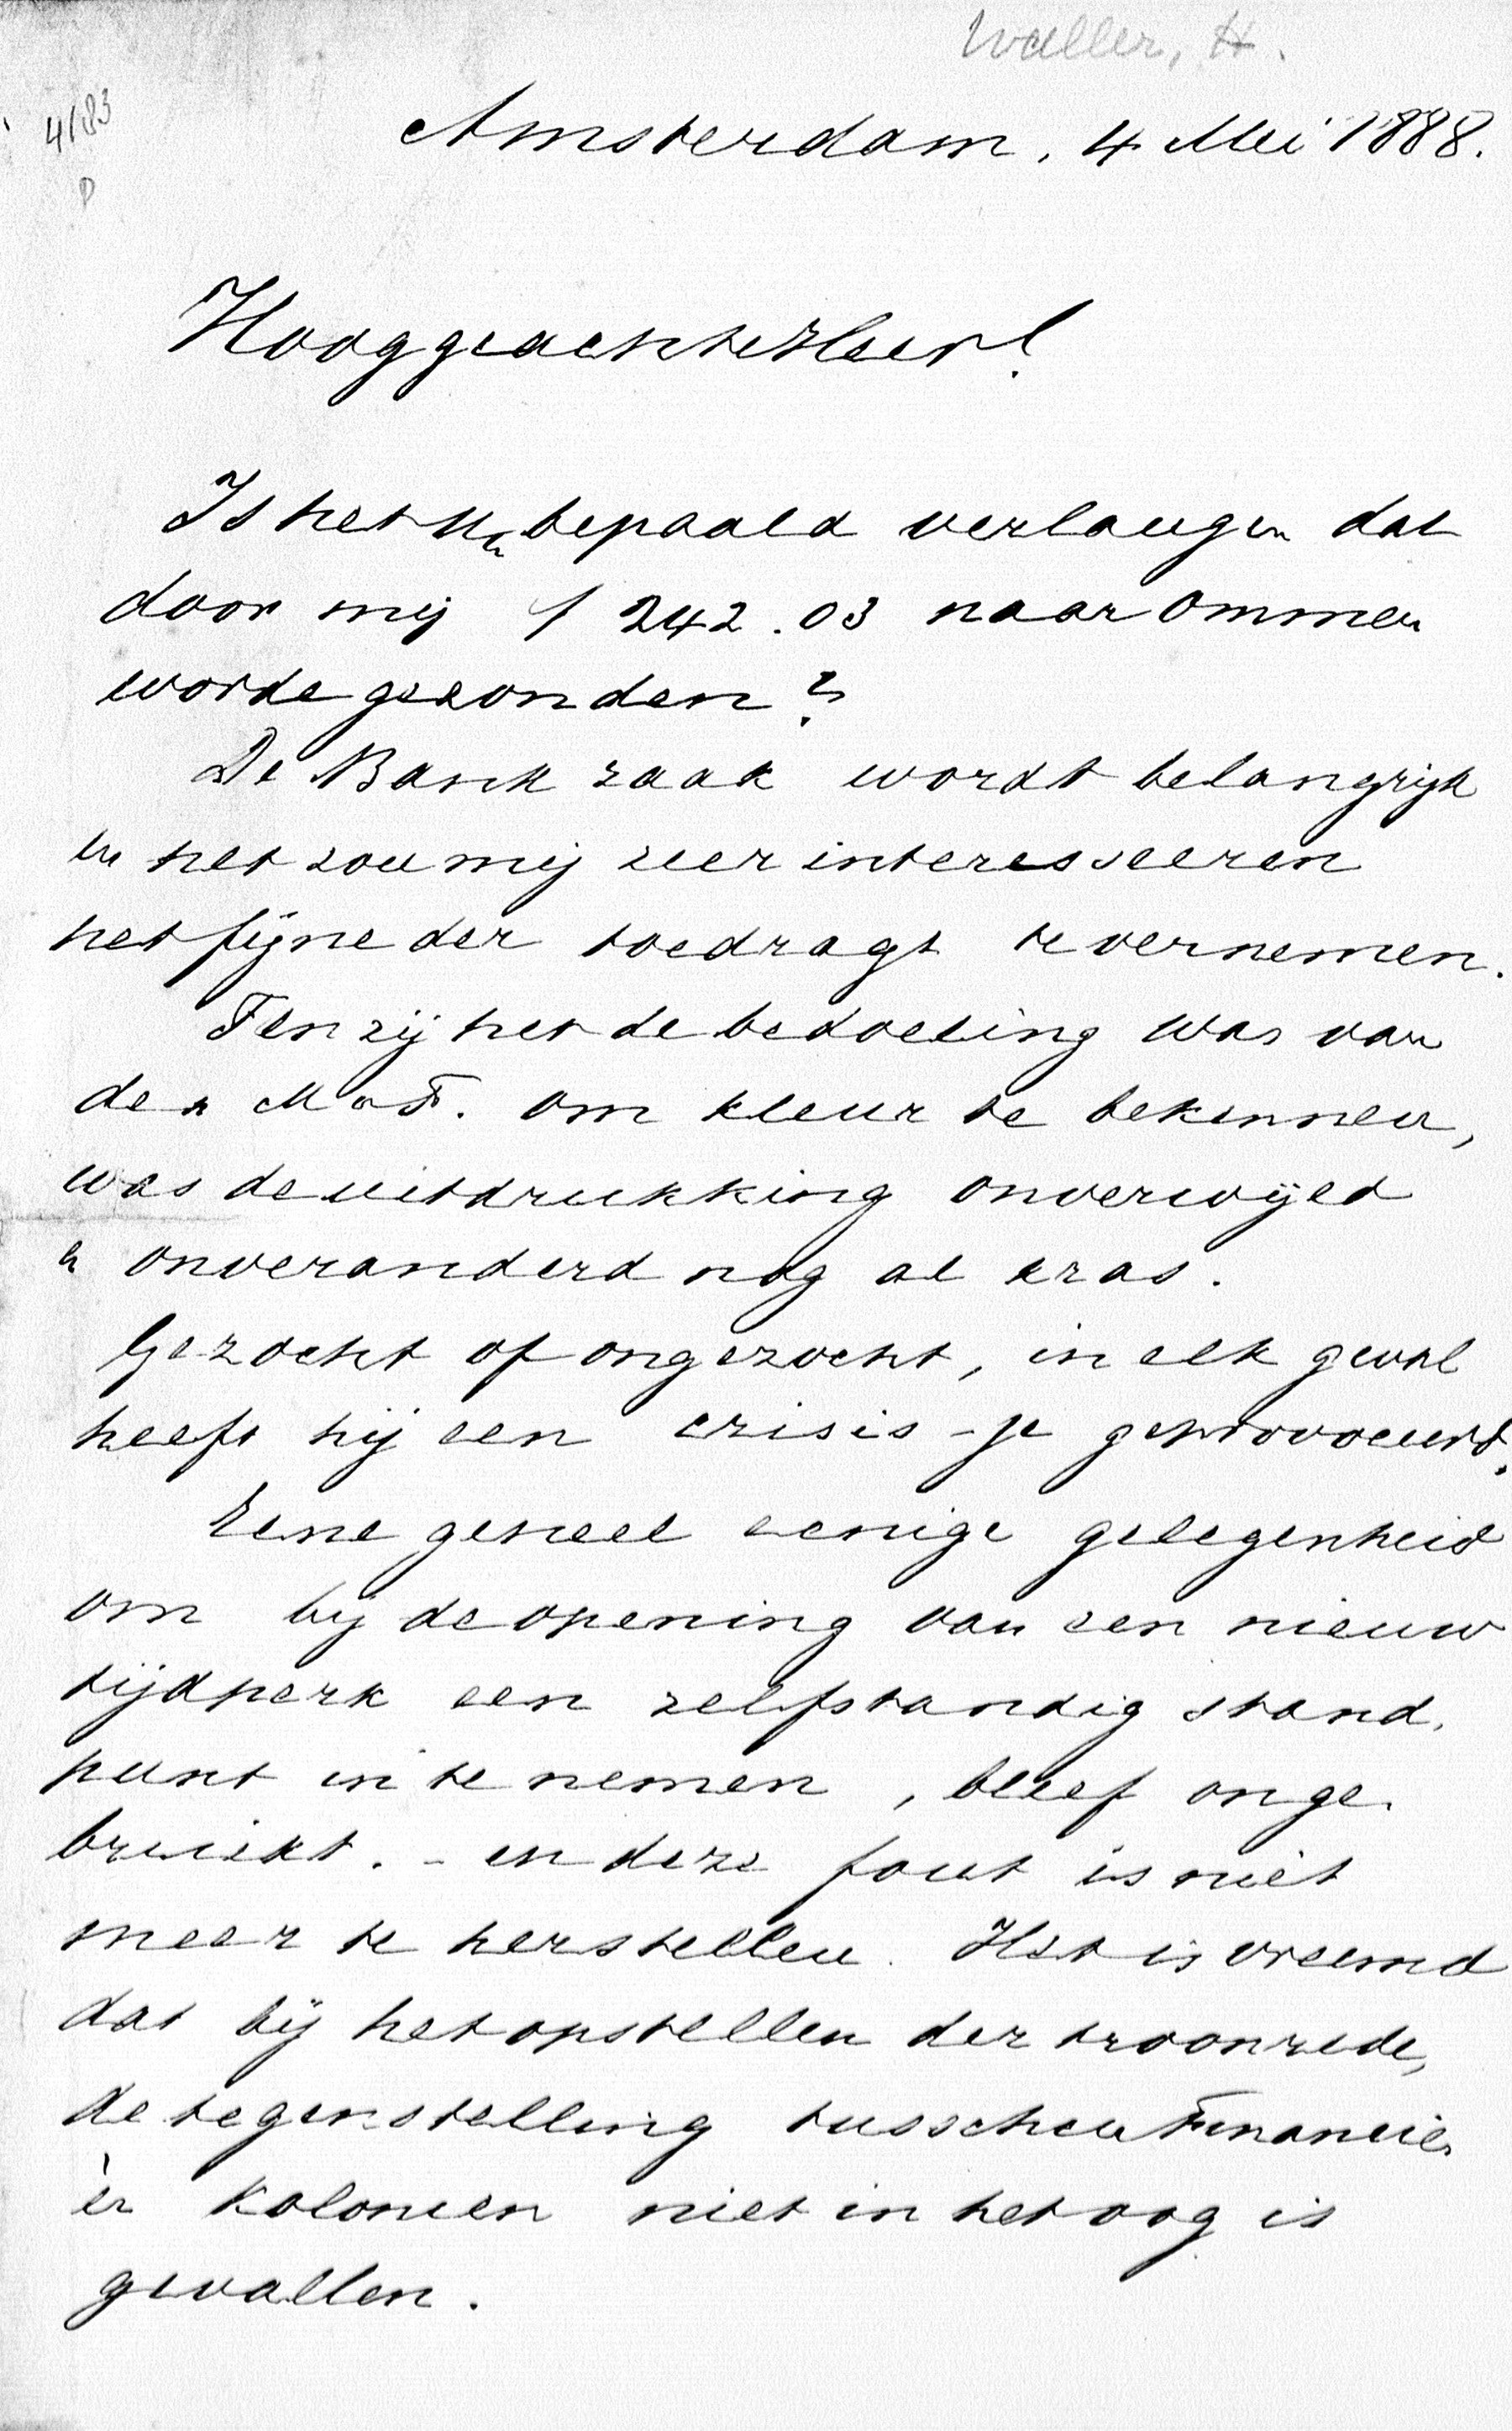 Waller, H.
4/83
D
Amsterdam, 4 Mei 1888.
Hooggeachte Heer!
Is het Uw bepaald verlangen dat
door mij f 242.03 naar Ommen
worde gezonden?
De Bank zaak wordt belangrijk
en het zou mij zeer interesseeren
het fijne der toedragt te vernemen.
Tenzij het de bedoeling was van
den M v F. om kleur te bekennen,
was de uitdrukking onverwijld
en onveranderd nog al kras.
Gezocht of ongezocht, in elk geval
heeft hij een crisis-je geprovoceerd.
Eene geheel eenige gelegenheid
om bij de opening van een nieuw
tijdperk een zelfstandig stand-
punt in te nemen, bleef onge-
bruikt. - en deze fout is niet
meer te herstellen. Het is vreemd
dat bij het opstellen der troonrede,
de tegenstelling tusschen Financien
èn Kolonien niet in het oog is
gevallen.